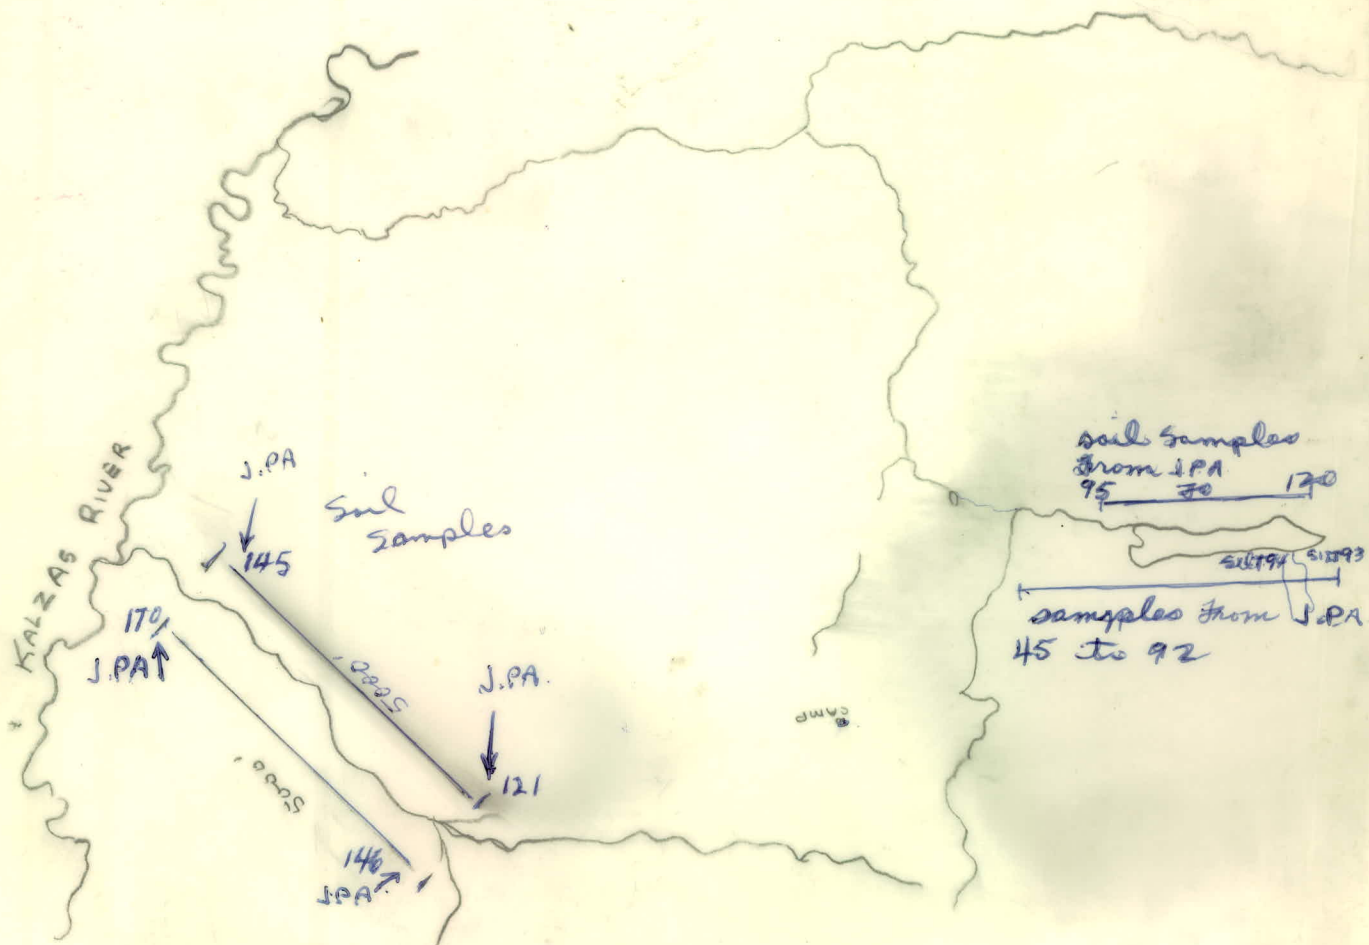 KALZAS RIVER
J.PA
145
Soil
Samples
170
J.PA
5000'
5000'
J.PA.
121
146
J.PA
CAMP
soil samples
From J.PA
95 TO 120
Silt 94
Silt 93
samples From J.PA
45 to 92